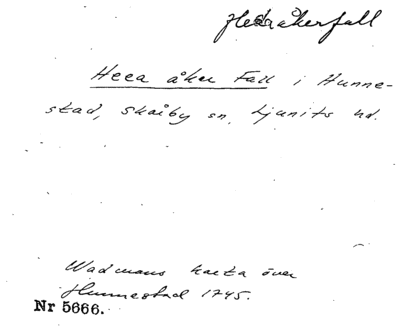 Hedåkerfall
Heea åker Fall i Hunne-
stad, Skårby sn, Ljunits hd.
Wadmans karta över
Hunnestad 1745.
Nr 5666.